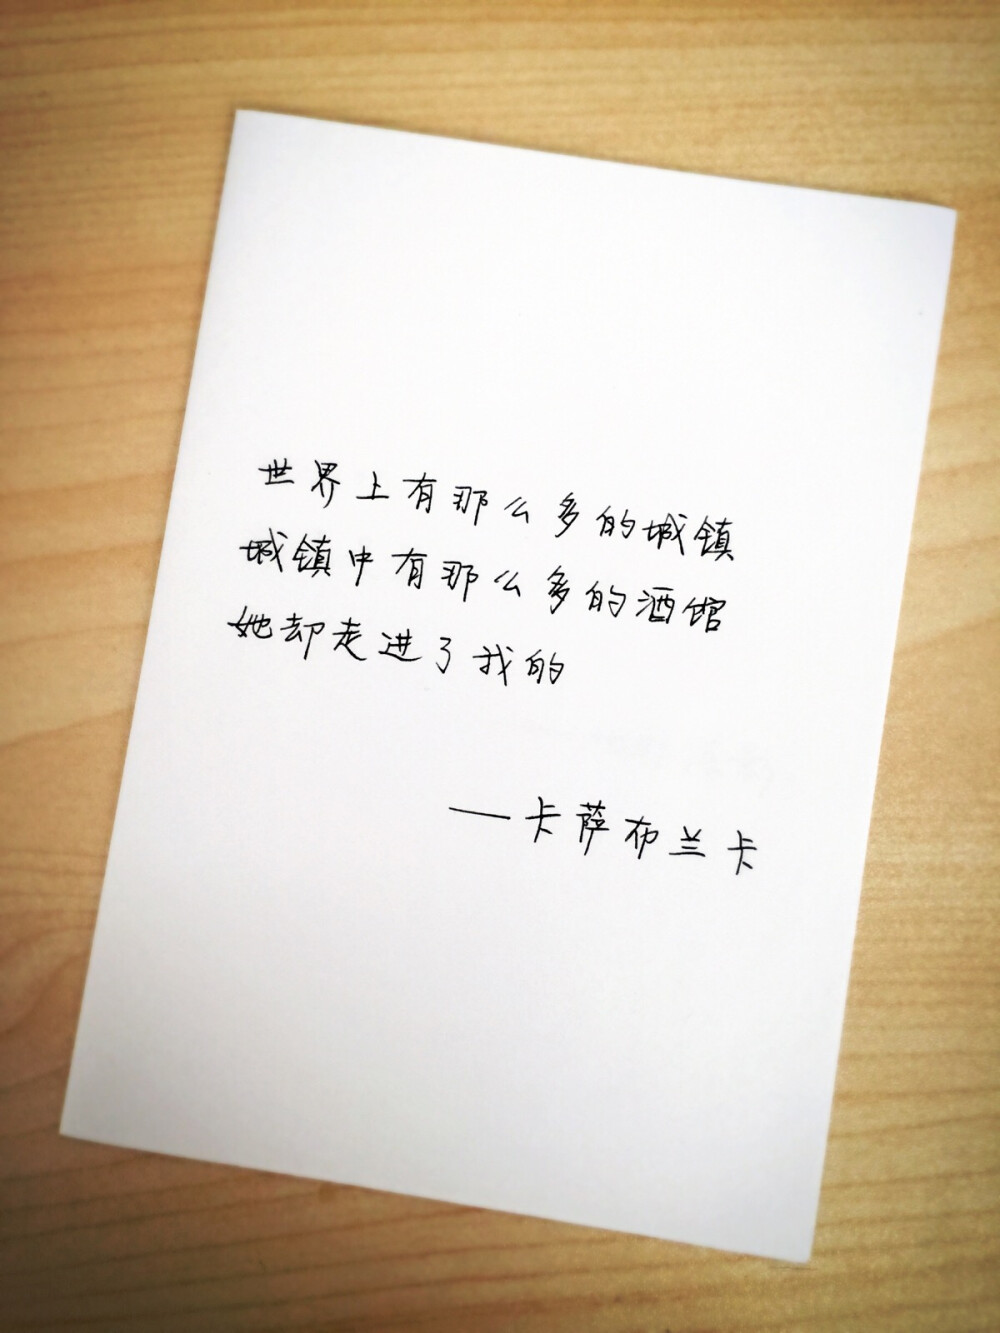 世界上有那么多的城镇
城镇中有那么多的酒馆
她却走进了我的
——卡萨布兰卡